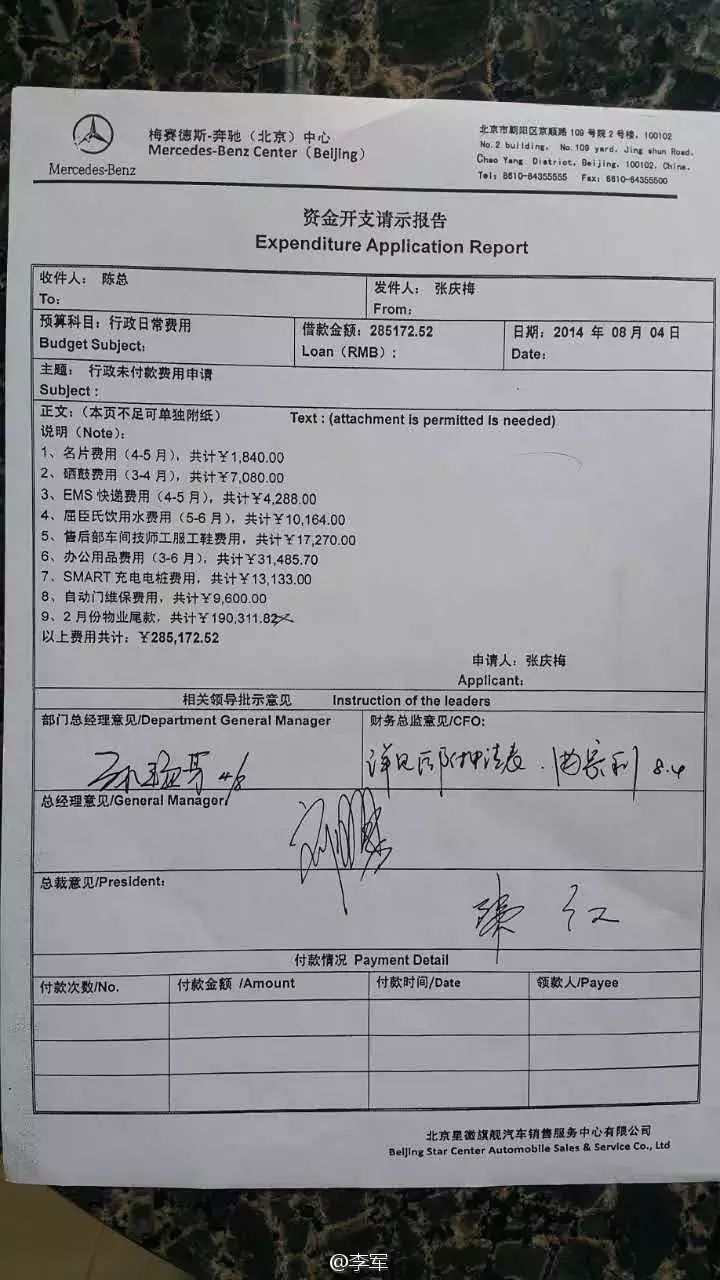 梅赛德斯-奔驰（北京）中心
Mercedes-Benz Center（Beijing）
Mercedes-Benz
北京市朝阳区京顺路 109 号院 2 号楼，100102
No.2 building, No.109 yard, Jing shun Road,
Chao Yang District, Beijing, 100102, China.
Tel：8610-64355555 Fax：8610-64355500
资金开支请示报告
Expenditure Application Report
收件人： 陈总
To：
发件人： 张庆梅
From：
预算科目：行政日常费用
Budget Subject：
借款金额：285172.52
Loan（RMB）：
日期：2014 年 08 月 04 日
Date：
主题： 行政未付款费用申请
Subject：
正文：（本页不足可单独附纸） Text：(attachment is permitted Is needed)
说明（Note）：
1、名片费用（4-5 月），共计￥1,840.00
2、硒鼓费用（3-4 月），共计￥7,080.00
3、EMS 快递费用（4-5 月），共计￥4,288.00
4、屈臣氏饮用水费用（5-6 月），共计￥10,164.00
5、售后部车间技师工服工鞋费用，共计￥17,270.00
6、办公用品费用（3-6 月），共计￥31,485.70
7、SMART 充电电桩费用，共计￥13,133.00
8、自动门维保费用，共计￥9,600.00
9、2 月份物业尾款，共计￥190,311.82
以上费用共计：￥285,172.52
申请人：张庆梅
Applicant：
相关领导批示意见 Instruction of the leaders
部门总经理意见/Department General Manager
财务总监意见/CFO：
4/8
详见后附申请表． 8.4
总经理意见/General Manager：
总裁意见/President：
付款情况 Payment Detail
付款次数/No.
付款金额 /Amount
付款时间/Date
领款人/Payee
北京星徽旗舰汽车销售服务中心有限公司
Beijing Star Center Automobile Sales & Service Co., Ltd
@李军